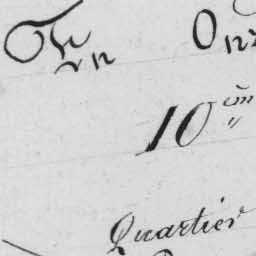 En Onz
10em
Quartier